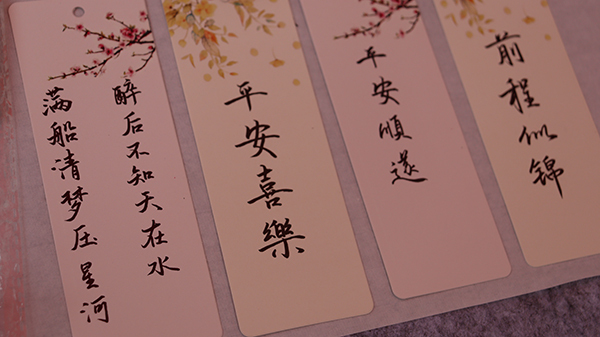 醉后不知天在水
满船清梦压星河
平安喜樂
平安順遂
前程似锦